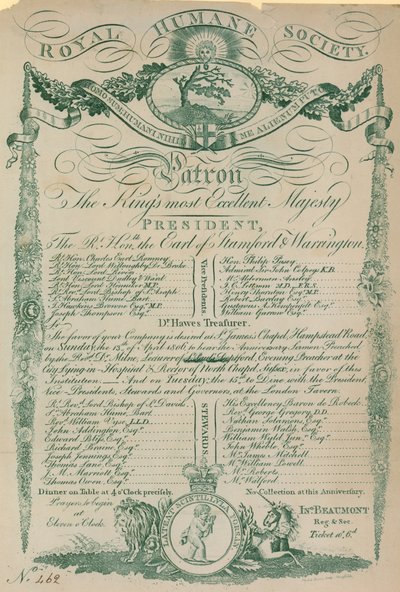 ROYAL HUMANE SOCIETY.
HOMO SUM HUMANI NIHIL ME ALIENUM PUTO
Patron
The King's most Excellent Majesty
PRESIDENT,
The Rt. Honble. the Earl of Stamford & Warrington.
Vice Presidents.
Rt. Hon. Charles Earl Romney
Rt. Hon. Lord Willoughby de Broke
Rt. Hon. Lord
Lord Viscount Dudley & Ward
Rt. Hon. Lord M.P.
Rt. Rev. Lord Bishop of St. Asaph
Sr. Abraham Hume Bart.
I. Hawkins Browne Esqr. M.P.
Thompson Esqr.
Hon. Philip Pusey
Admiral Sir John Colpoys K.B.
Mr. Alderman
I. C. Lettsom M.D. F.R.S.
Henry Thornton Esqr. M.P.
Robert Barclay Esqr.
Gustavus A. Kempenfelt Esqr.
William Garrow Esqr.
Dr. Hawes Treasurer.
To
The favor of your Company is desired at St. James's Chapel, Hampstead Road
on Sunday, the 13th. of April 1806, to hear the Anniversary Sermon Preached
by the Revd. Dr. Milne, Lecturer of Deptford, Evening Preacher at the
City Lying-in Hospital & Rector of North Chapel, Sussex, in favor of this
Institution — And on Tuesday, the 15th. to Dine with the President
Vice-Presidents, Stewards and Governors, at the London Tavern
STEWARDS.
Rt. Revd. Lord Bishop of St. Davids.
Sr. Abraham Hume, Bart.
Revd. William Vyse, L.L.D.
John Addington, Esqr.
Edward Bliss, Esqr.
Richard Browne Esqr.
Joseph Jennings Esqr.
Thomas Lane, Esqr.
J. M. Marriott Esqr.
Thomas Owen, Esqr.
His Excellency Baron de Robeck.
Revd. George Gregory, D.D.
Nathan Salomons, Esqr.
Benjamin Walsh, Esqr.
William Esqr.
John Whittle Esqr.
Mr. James Mitchell
Mr. William Powell
Mr. Roberts
Mr. Walford
Dinner on Table at 4 o'Clock precisely.
No Collection at this Anniversary.
Prayers to begin
at
Eleven o'Clock.
LATEAT SCINTILLULA FORSAN
Jno. BEAUMONT
Reg & Sec.
Ticket 10s. 6d.
No. 462